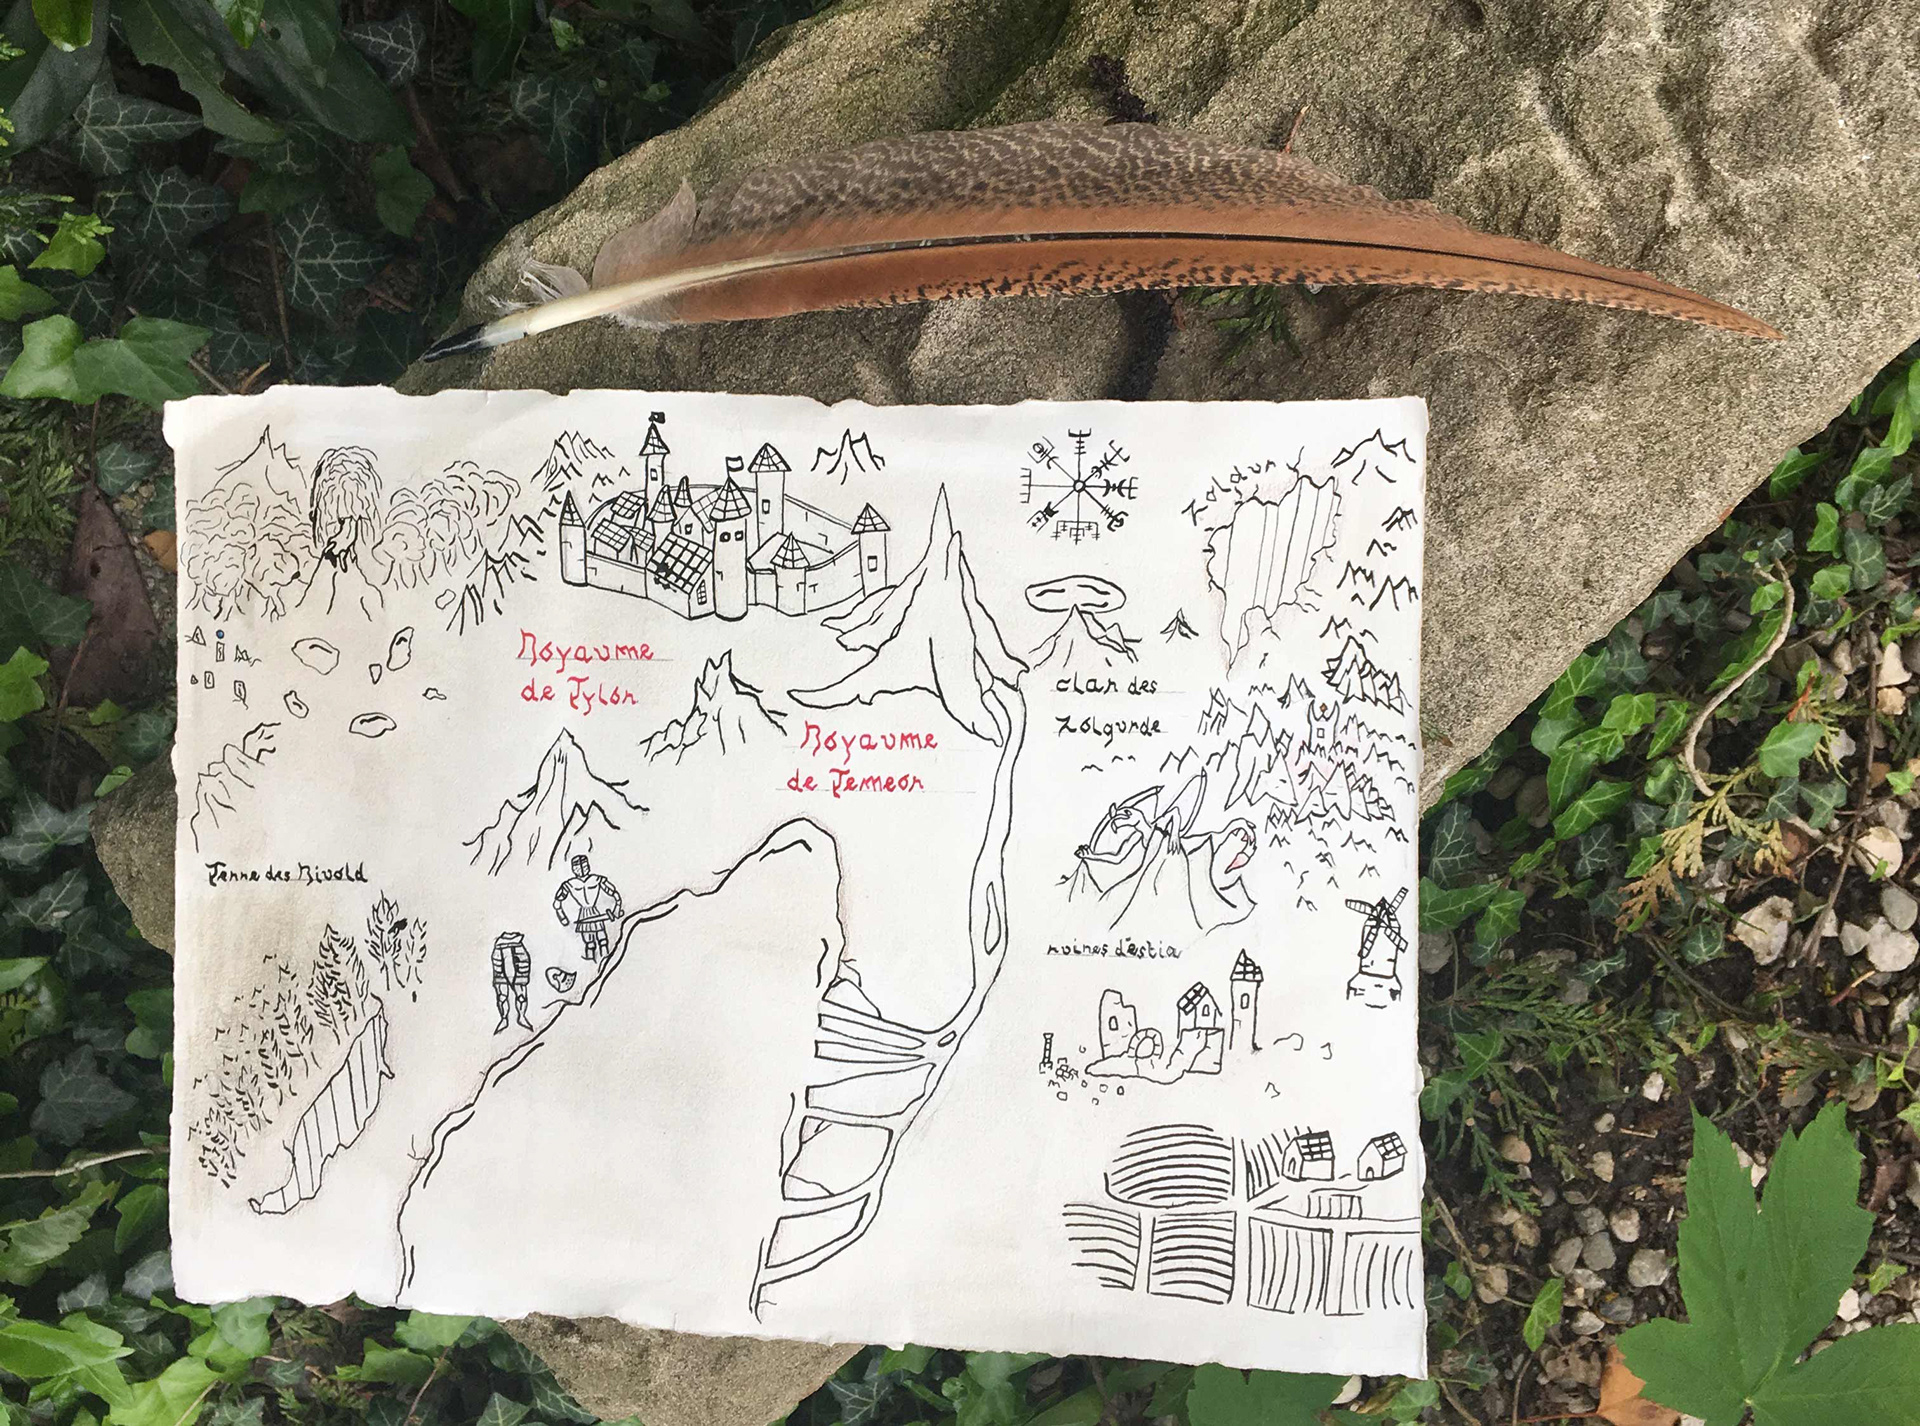 Zoldur
Royaume
de Tylon
clan des
Zolgurde
Royaume
de Temeor
Terre des Rivold
ruines d'estia